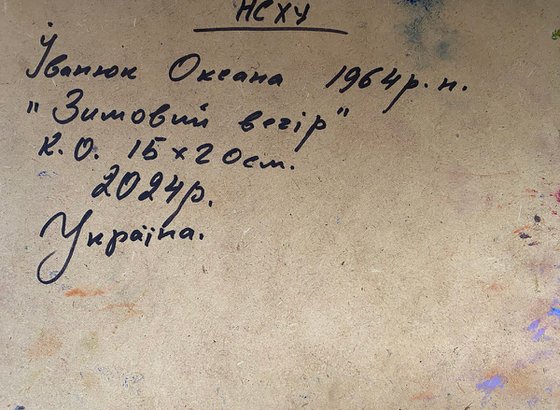 НСХУ
Іванюк Оксана 1964р.н.
"Зимовий вечір"
К.О. 15x20см.
2024р.
Україна.